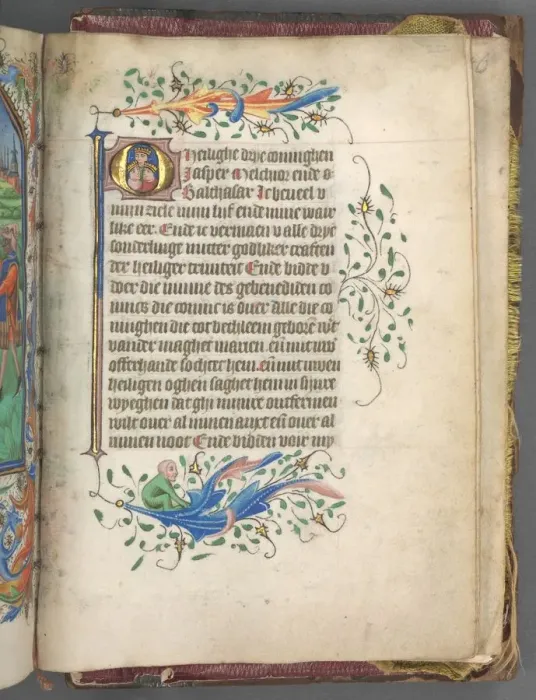 O Heilighe drye coninghen
Jasper Melchior ende
Balthasar Ic beueel v
mijn ziele mijn lijf ende mine wair
like eer. Ende ic vermaen v alle drye
sonderlinge mitter godliker craften
der heiliger triniteit Ende bidde v
doer die minne des gebenediden co
nincs die coninc is ouer alle die co
ninghen die tot bethleem geborē
vander maghet marien. eñ mit uwe
offerhande sochtet hem. eñ mit uwen
heiligen oghen saghet hem in sijnre
wyeghen dat ghi mijnre ontfermen
wilt ouer al minen anxt eñ ouer al
minen noot Ende bidden voir my